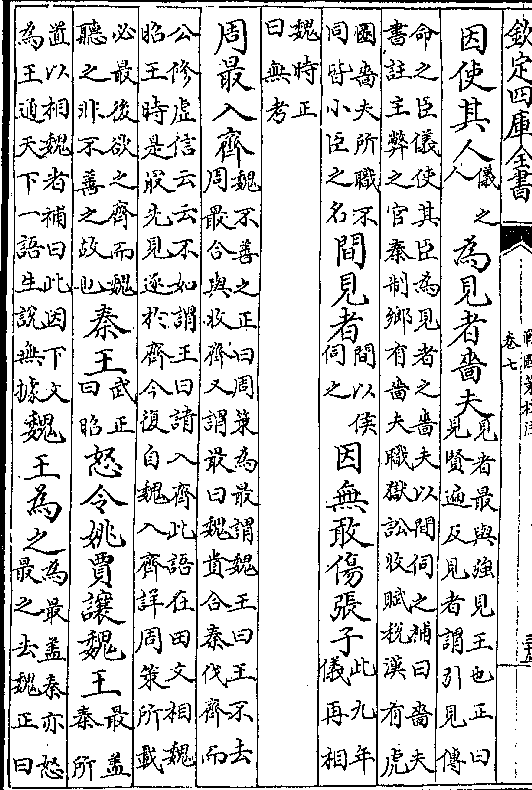 欽定四庫全書
卷七
因使其人儀之人為見者嗇夫見者最與強見王也正曰見賢遍反見者謂引見傳
命之臣儀使其臣為見者之嗇夫以間伺之補曰嗇夫書註主弊之官秦制鄉有嗇夫職獄訟收賦稅漢有虎
圈嗇夫所職不同皆小臣之名間見者間以俟伺之因無敢傷張子此九年儀再相
魏時正曰無考
周最入齊魏不善之正曰周策為最謂魏王曰王不去周最合與收齊又謂最曰魏貴合秦伐齊而
公修虛信云云不如謂王曰請入齊此語在田文相魏昭王時是最先見逐於齊今復自魏入齊詳周策所載
必最後欲之齊而魏聽之非不善之故也秦王武正曰昭怒令姚賈讓魏王最蓋秦所
置以相魏者補曰此因下文為王通天下一語生說無據魏王為之為最蓋秦亦怒最之去魏正曰